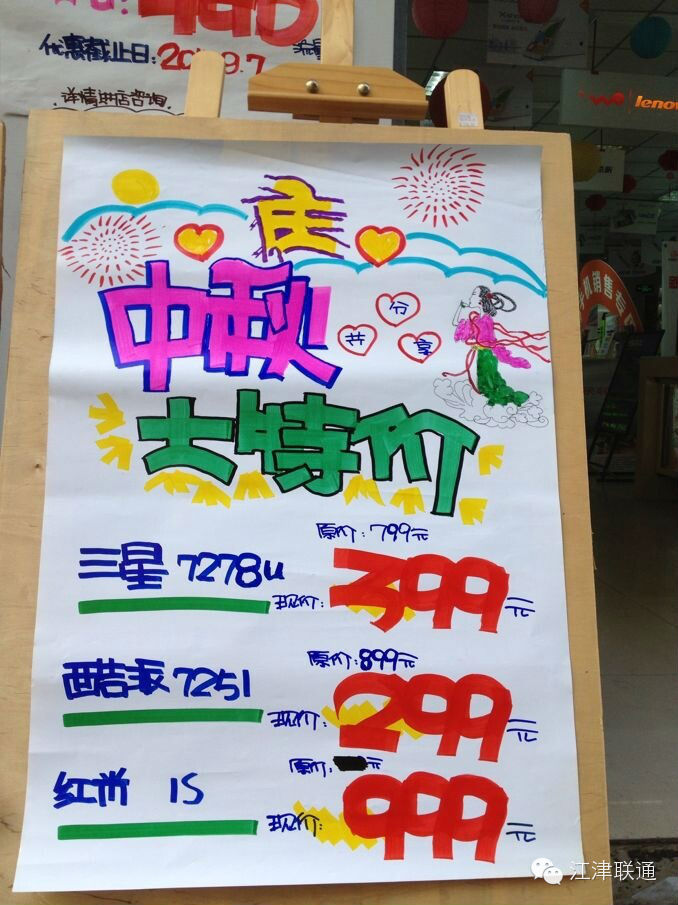 优惠截止日：
9.7
详情进店咨询
wo
lenovo
机销售
庄
中秋
共
分
享
大特价
三星 7278u
原价：799元
现价：399元
酷派 7251
原价：899元
现价：299元
红米 1S
原价：元
现价：999元
江津联通